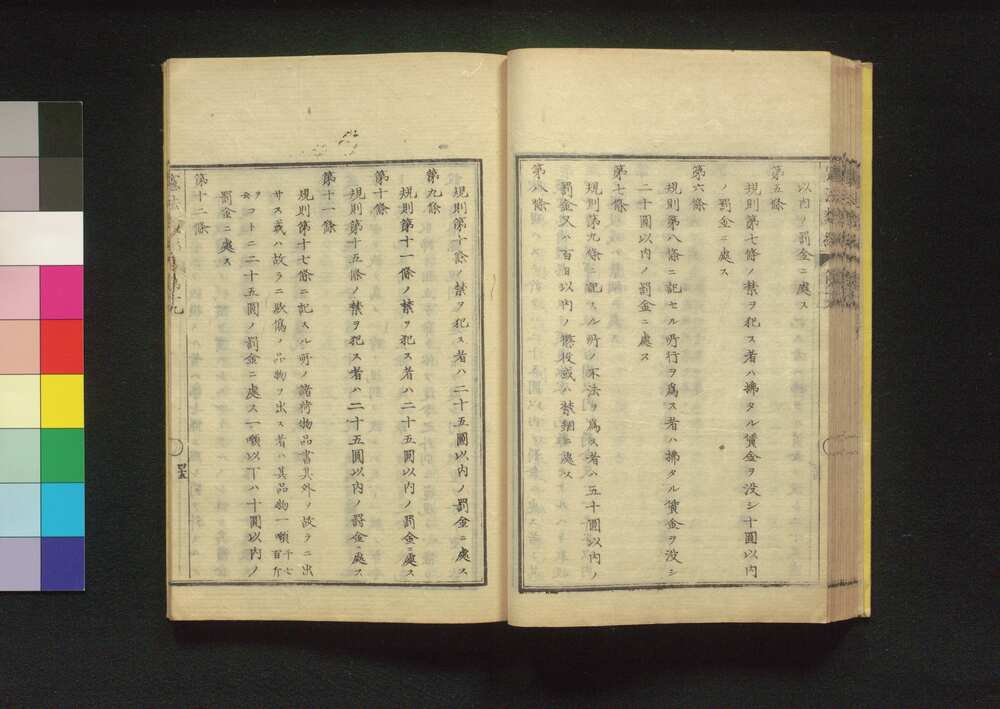 以内ヲ罰金ニ處ス
第五條
規則第七條ノ禁ヲ犯ス者ハ拂タル賃金ヲ没シ十圓以内
ノ罰金ニ處ス
第六條
規則第八條ニ記セル所行ヲ爲ス者ハ拂タル賃金ヲ没シ
二十圓以内ノ罰金ニ處ス
第七條
規則第九條ニ記スル所ノ不法ヲ爲ス者ハ五十圓以内ノ
罰金又ハ百日以内ノ懲役或ハ禁錮ニ處ス
第八條
規則第十條ノ禁ヲ犯ス者ハ二十五圓以内ノ罰金ニ處ス
第九條
規則第十一條ノ禁ヲ犯ス者ハ二十五圓以内ノ罰金ニ處ス
第十條
規則第十五條ノ禁ヲ犯ス者ハ二十五圓以内ノ罰金ニ處ス
第十一條
規則第十七條ニ記スル所ノ諸荷物品書其外ヲ故ラニ出
サス或ハ故ラニ欺僞ノ品物ヲ出ス者ハ其品物一噸千七百斤
ヲコトニ二十五圓ノ罰金ニ處ス一噸以下ハ十圓以内ノ
罰金ニ處ス
第十二條
四十五